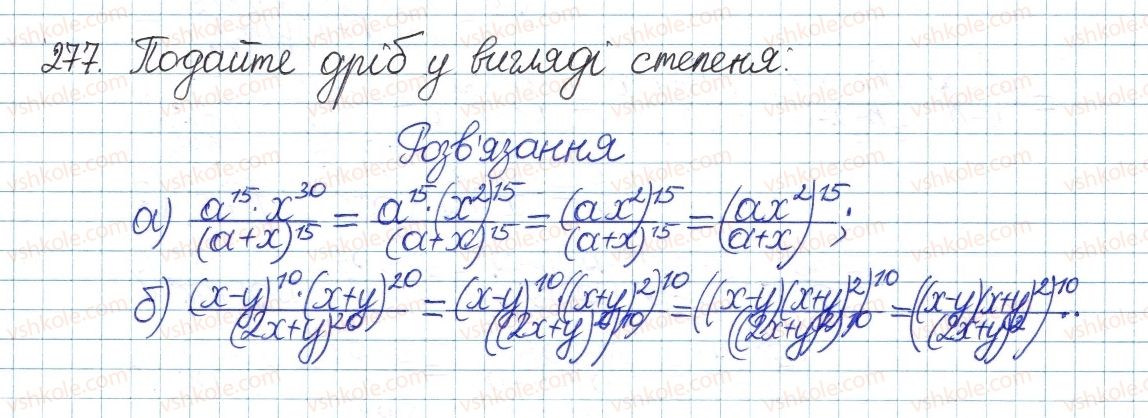 277. Подайте дріб у вигляді степеня:
Розв'язання
а) \frac{a^{15} \cdot x^{30}}{(a+x)^{15}} = \frac{a^{15} \cdot (x^2)^{15}}{(a+x)^{15}} = \frac{(ax^2)^{15}}{(a+x)^{15}} = \left(\frac{ax^2}{a+x}\right)^{15};
б) \frac{(x-y)^{10} \cdot (x+y)^{20}}{(2x+y)^{20}} = \frac{(x-y)^{10} \cdot ((x+y)^2)^{10}}{((2x+y)^2)^{10}} = \frac{((x-y)(x+y)^2)^{10}}{((2x+y)^2)^{10}} = \left(\frac{(x-y)(x+y)^2}{(2x+y)^2}\right)^{10}..